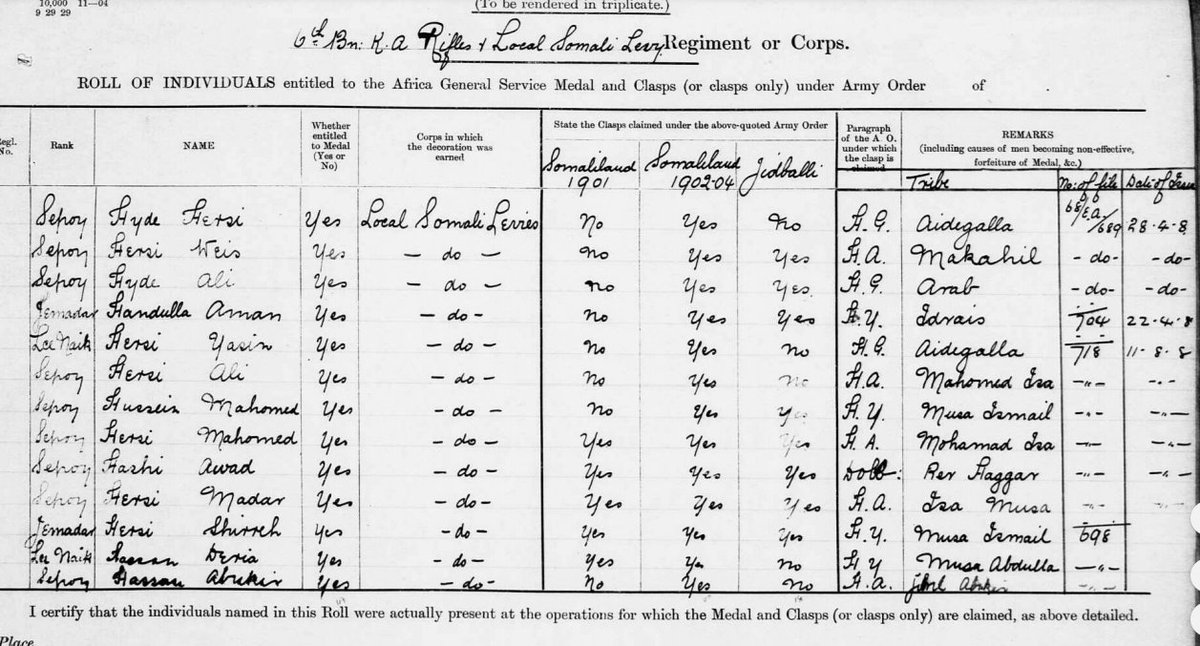 (To be rendered in triplicate.)
10,000 11—04
9 29 29
6th Bn: K. A Rifles & Local Somali Levy Regiment or Corps.
ROLL OF INDIVIDUALS entitled to the Africa General Service Medal and Clasps (or clasps only) under Army Order of
Regl. No. Rank NAME Whether entitled to Medal (Yes or No) Corps in which the decoration was earned State the Clasps claimed under the above-quoted Army Order Paragraph of the A. O. under which the clasp is claimed REMARKS (including causes of men becoming non-effective, forfeiture of Medal, &c.)
Somaliland 1901 Somaliland 1902-04 Jidballi Tribe No: of file Date of Issue
Sepoy Hyde Hersi Yes Local Somali Levies No Yes No H. G. Aidegalla 68/E.A./689 28-4-8
Sepoy Hersi Weis Yes — do — No Yes Yes H. A. Makahil - do- -do-
Sepoy Hyde Ali Yes — do — No Yes Yes. H. G. Arab -do- -do-
Jemadar Handulla Aman Yes — do — No Yes Yes H. Y. Idrais 704 22-4-8
Lce Naik Hersi Yasin Yes — do — No Yes No H. G. Aidegalla 718 11-8-8
Sepoy Hersi Ali Yes — do — No Yes No H. A. Mahomed Isa -"- -"-
Sepoy Hussein Mahomed Yes — do — No Yes Yes H. Y. Musa Ismail -"- -"-
Sepoy Hersi Mahomed Yes — do — Yes Yes Yes H. A. Mohamad Isa -"- -"-
Sepoy Hashi Awad Yes — do — Yes Yes Yes Dolb: Rer Haggar -"- -"-
Sepoy Hersi Madar Yes — do — Yes Yes Yes H. A. Isa Musa -"- -"-
Jemadar Hersi Shirreh Yes — do — Yes Yes Yes H. Y. Musa Ismail 698
Lce Naik Hassan Deria Yes — do — Yes Yes No H Y Musa Abdulla -"-
Sepoy Hassan Abukir Yes — do — No Yes No H. A. Abukir -"-
I certify that the individuals named in this Roll were actually present at the operations for which the Medal and Clasps (or clasps only) are claimed, as above detailed.
Place